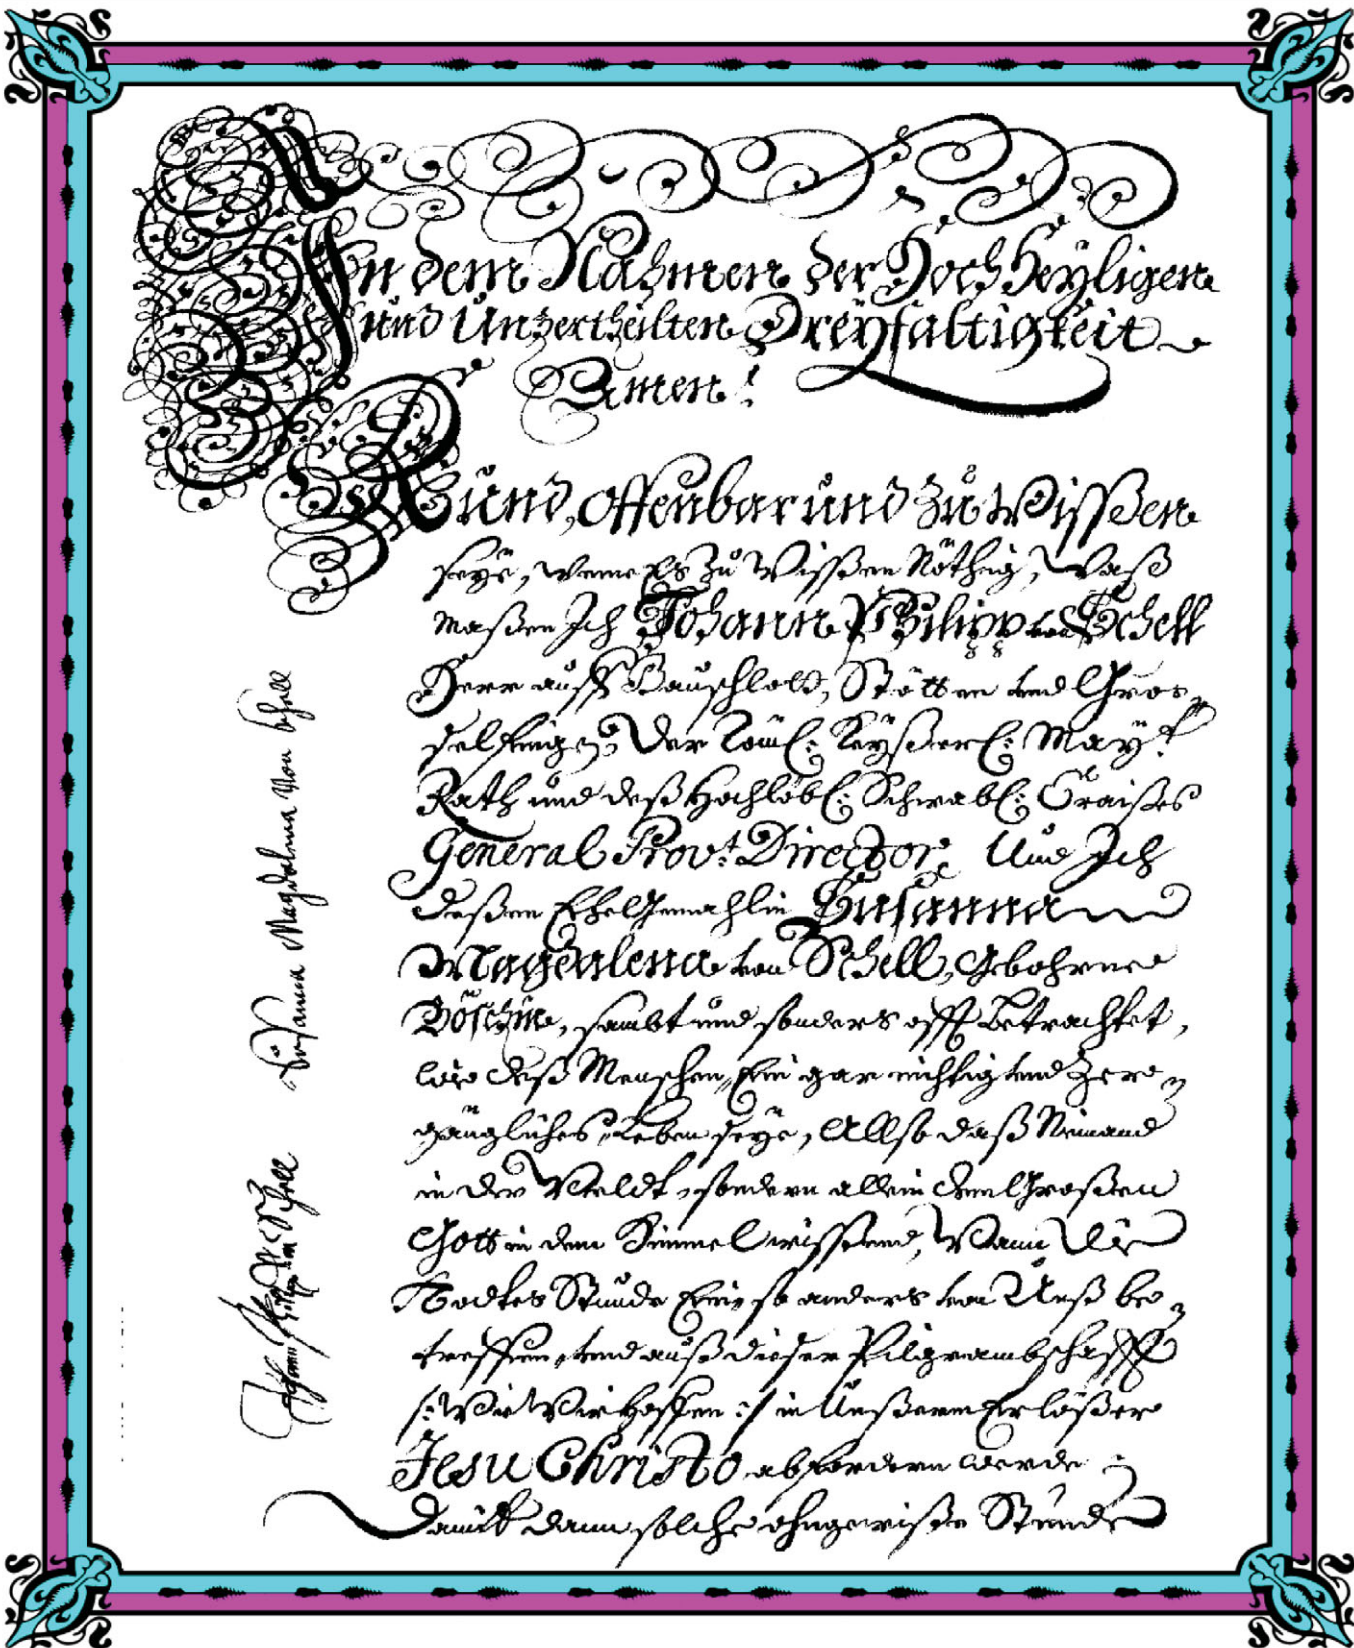 In dem Nahmen der Hochheyligen
und Unzertheilten Dreyfaltigkeit
Amen!
Kund, offenbar und zu Wißen
seye, weme Es zu Wißen Nöthig, Waß
maßen Ich Johann Philipp von Schell
Herr auff Bauschlott, Stötten und Gros-
selfingen, Der Röml: Keyßerl: May:t
Rath und deß Hochlöbl: Schwäbl: Craißes
General Prov:t Director. Und Ich
deßen Ehe Gemahlin Susanna
Magdalena von Schell, Gebohrne
sambt und sonders offt betrachtet,
wie deß Menschen Ein gar nichtig und Zer-
gängliches Leben seye, Allso daß Niemand
in der Weldt, sondern allein dem Großen
Gott in dem Himmel wissend, Wann Die
Todtes Stunde Ein, so anders von Unß be-
treffen, und auß dieser Pilgrambschafft
/: Wie Wir hoffen :/ in Unßerm Erlößer
Jesu Christo abfordern werde
Damit dann solche ohngewiße Stunde
Johann Philipp von Schell
Susanna Magdalena Von Schell